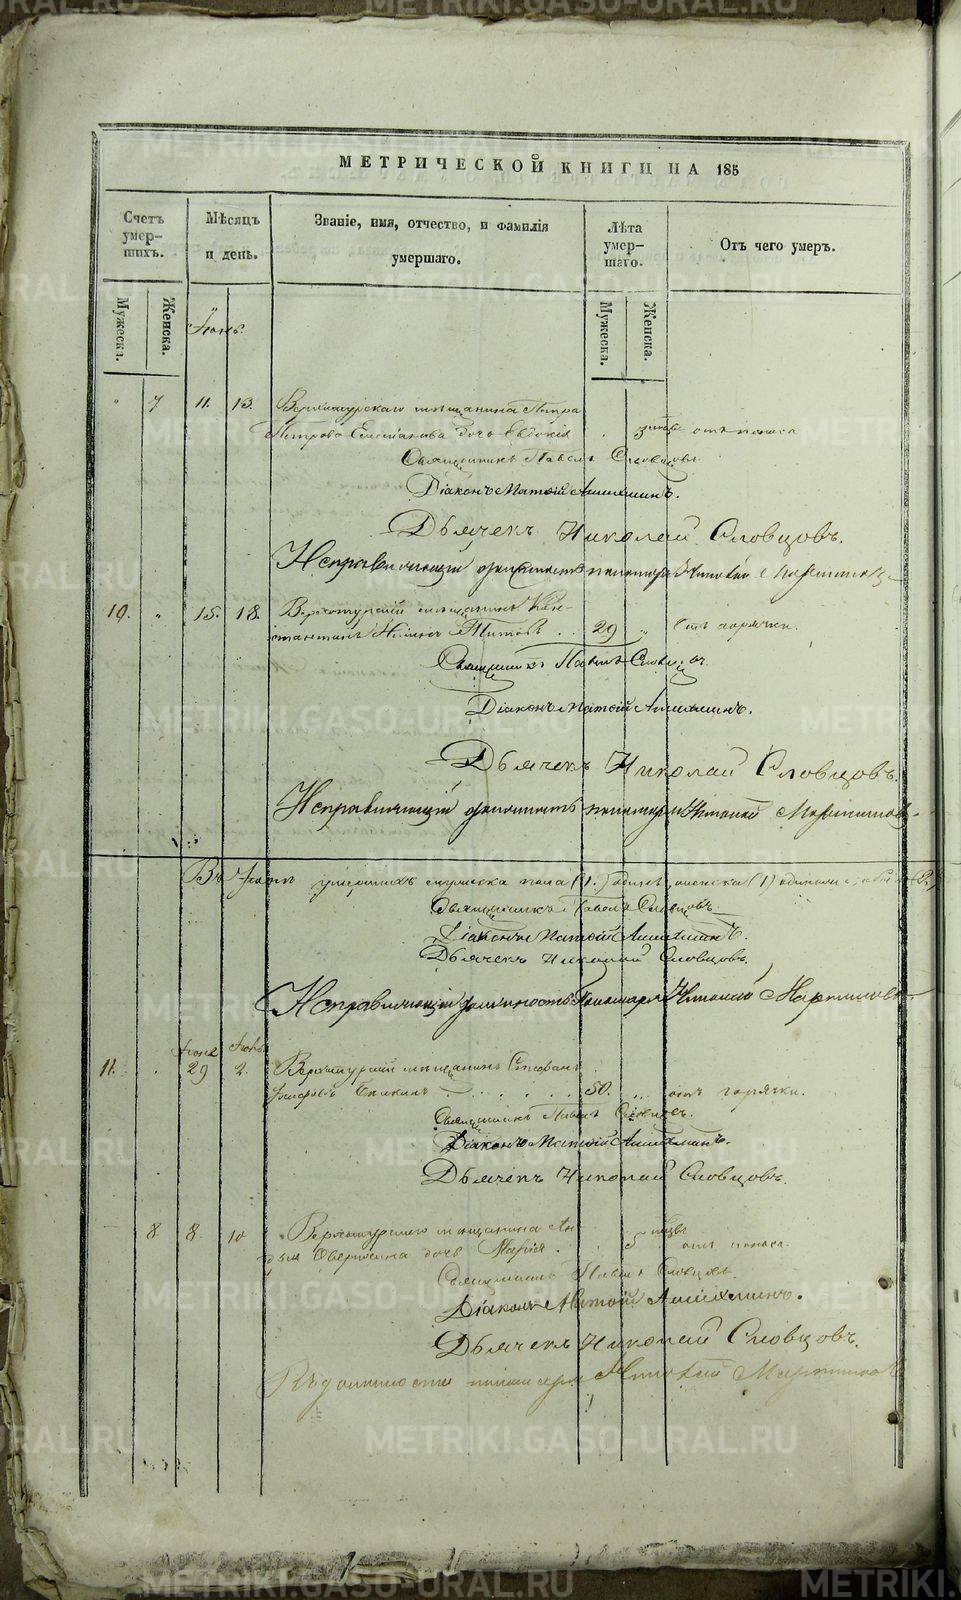 МЕТРИЧЕСКОЙ КНИГИ НА 185
Счетъ умер-шихъ.
Мѣсяцъ и день.
Званіе, имя, отчество, и фамилія умершаго.
Лѣта умер-шаго.
Отъ чего умеръ.
Мужеска.
Женска.
Мужеска.
Женска.
Іюнь.
" 7 11. 13. Верхотурскаго мѣщанина Петра
Петрова дочь Евдокія отъ поноса
Священникъ Павелъ Словцовъ
Діаконъ Матѳій
Дьячекъ Николай Словцовъ.
Исправляющій должность пономаря Мартиновъ
10. " 15. 18. Верхотурскій мѣщанинъ Кон-
стантинъ Титовъ 29 " Отъ горячки.
Священникъ Павелъ Словцовъ.
Діаконъ Матѳій
Дьячекъ Николай Словцовъ.
Исправляющій должность пономаря Мартиновъ
Въ Іюнѣ умершихъ мужеска пола (1.) одинъ, женска (1) одинъ
Священникъ Павелъ Словцовъ
Діаконъ Матѳій
Дьячекъ Николай Словцовъ.
Исправляющій должность Пономаря Мартиновъ
11. Іюня 29 2. Верхотурскій мѣщанинъ Стефанъ
50. " отъ горячки.
Священникъ Павелъ Словцовъ.
Діаконъ Матѳій
Дьячекъ Николай Словцовъ.
8. 8. 10 Верхотурскаго мѣщанина Ан-
дочь Марія. 5 отъ поноса.
Священникъ Павелъ Словцовъ.
Діаконъ Матѳій
Дьячекъ Николай Словцовъ.
Въ должности пономаря Мартиновъ
METRIKI.GASO-URAL.RU